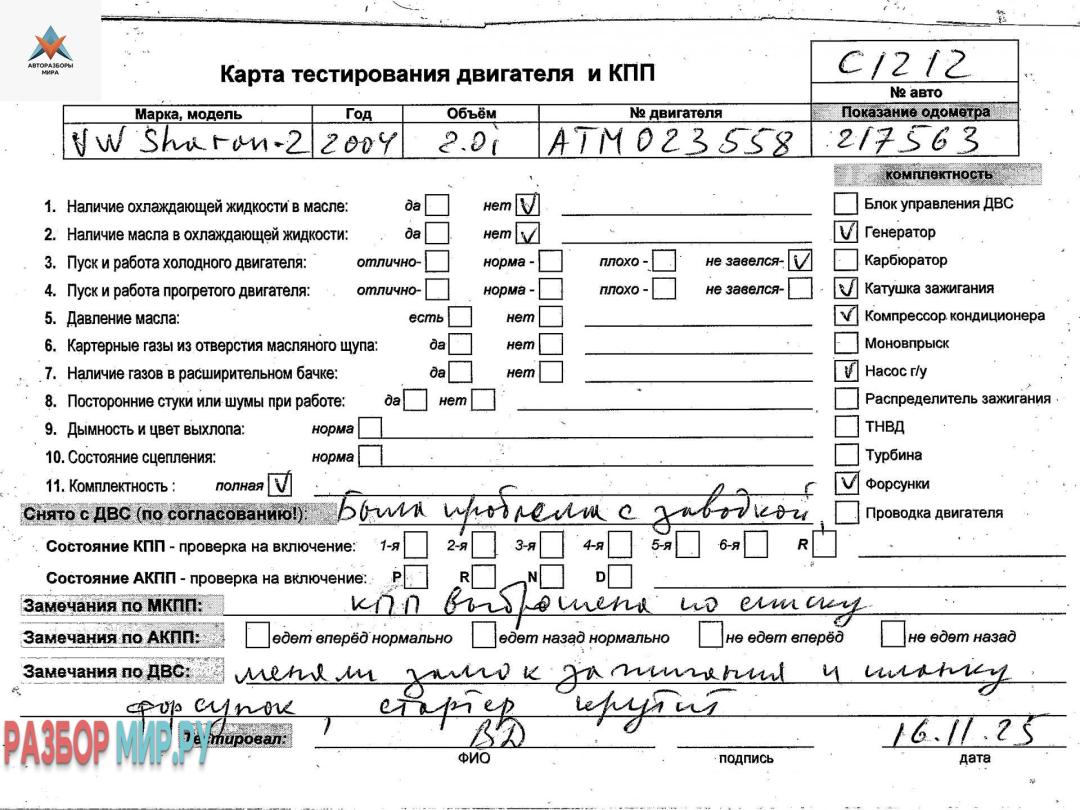 АВТОРАЗБОРЫ
МИРА
Карта тестирования двигателя и КПП
C1212
№ авто
Марка, модель Год Объём № двигателя Показание одометра
VW Sharan-2 2004 2.0i ATM023558 217563
комплектность
1. Наличие охлаждающей жидкости в масле: да нет V
Блок управления ДВС
2. Наличие масла в охлаждающей жидкости: да нет V
V Генератор
3. Пуск и работа холодного двигателя: отлично- норма - плохо - не завелся- V
Карбюратор
4. Пуск и работа прогретого двигателя: отлично- норма - плохо - не завелся-
V Катушка зажигания
5. Давление масла: есть нет
V Компрессор кондиционера
6. Картерные газы из отверстия масляного щупа: да нет
Моновпрыск
7. Наличие газов в расширительном бачке: да нет
V Насос г/у
8. Посторонние стуки или шумы при работе: да нет
Распределитель зажигания
9. Дымность и цвет выхлопа: норма
ТНВД
10. Состояние сцепления: норма
Турбина
11. Комплектность : полная V
V Форсунки
Снято с ДВС (по согласованию!): Была проблема с заводкой,
Проводка двигателя
Состояние КПП - проверка на включение: 1-я 2-я 3-я 4-я 5-я 6-я R
Состояние АКПП - проверка на включение: P R N D
Замечания по МКПП: КПП выброшена по списку
Замечания по АКПП: едет вперёд нормально едет назад нормально не едет вперёд не едет назад
Замечания по ДВС: меняли замок зажигания и планку
форсунок, стартер крутит
Тестировал: ВД 16.11.25
ФИО подпись дата
РАЗБОРМИР.РУ